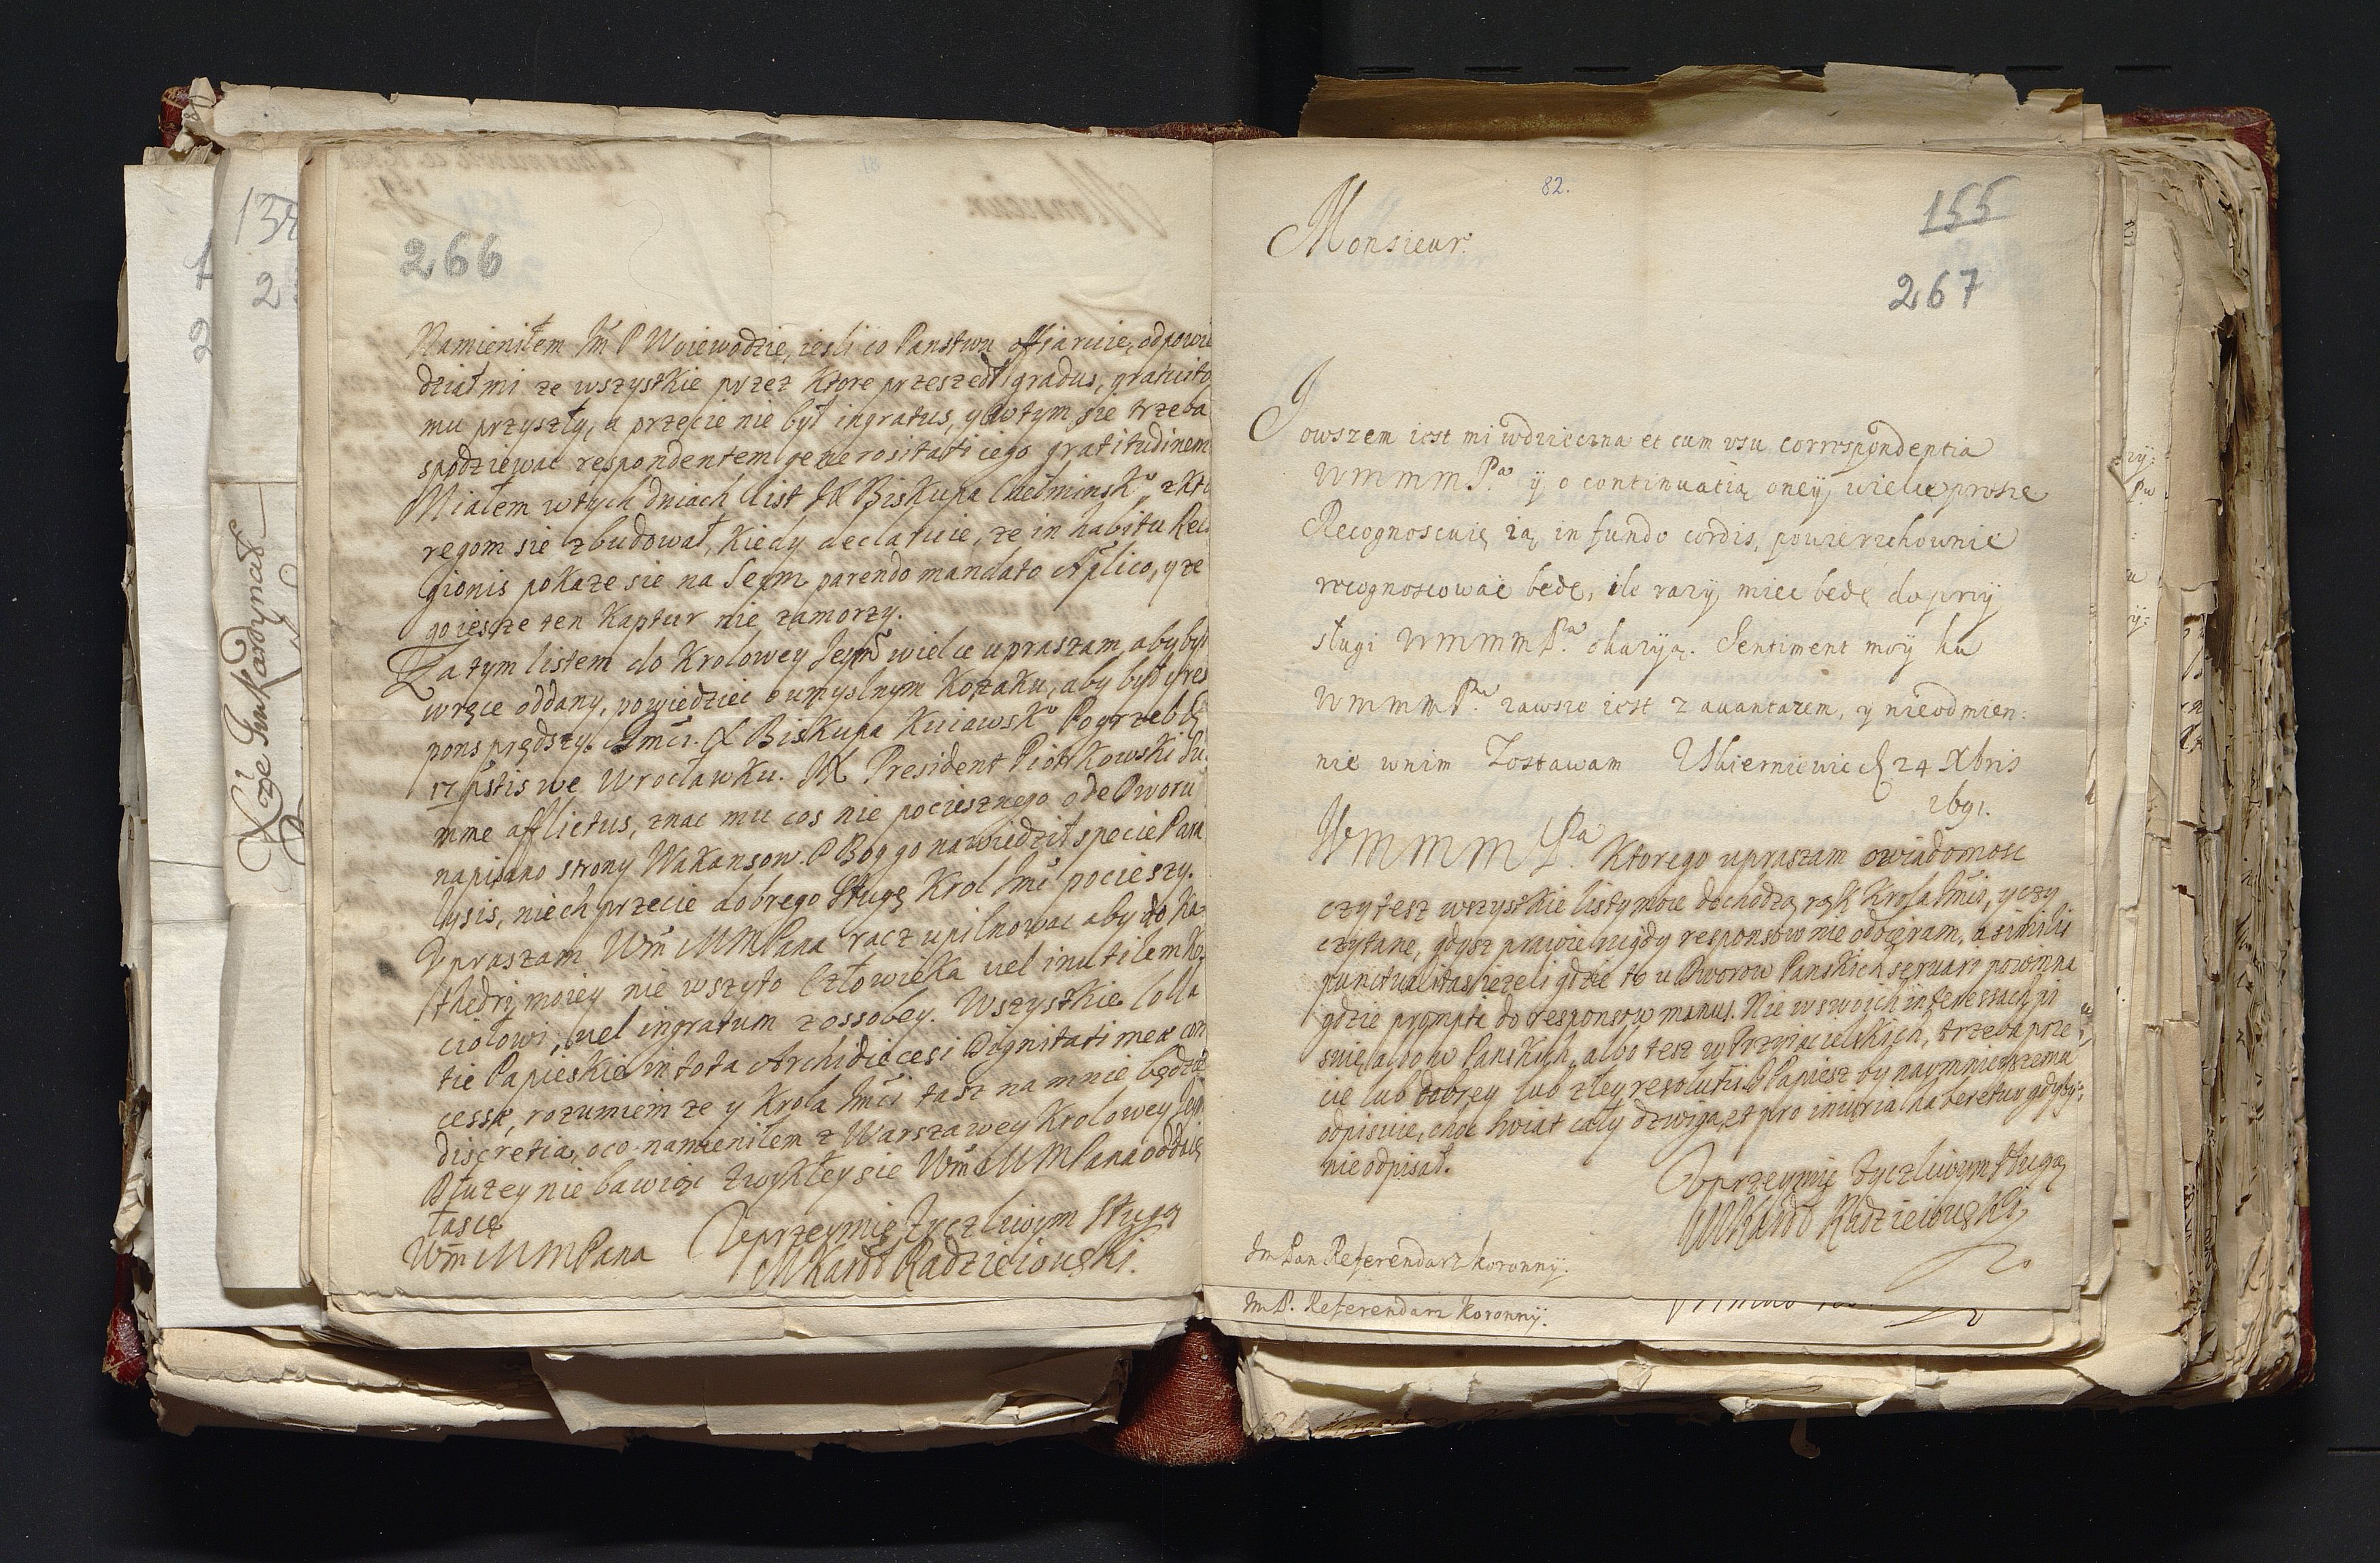 266
Namieniłem Jm P Woiewodzie, iesli co Panstwu offiaruie, odpowie
dział mi ze wszystkie przez Ktore przeszedł gradus, gratuito
mu przyszły, a przecie nie był ingratus, y wtym sie trzeba
spodziewac respondentem generositati iego gratitudinem
Miałem wtych dniach list JX Biskupa Chełminskº, z kto
regom sie zbudował, Kiedy declaruie, ze in habitu Reli
gionis pokaze sie na Seym parendo mandato Aplico, y ze
go iescze ten Kaptur nie zamorzy.
Za tym listem do Krolowey Jeym wielce upraszam, aby był
wręce oddany, powiedziec o umyslnym Kozaku, aby był y res
pons prędszy. Jmci X Biskupa Kuiawskº Pogrzeb
17 pstis we Wrocławku. JX President Piotrkowski su
mme afflictus, znac mu cos nie pociesznego ode Dworu
napisano strony Wakansow. P Bog go nawiedził specie Para
lysis, niech przecie dobrego Sługę Krol Jmc pocieszy.
Upraszam Wm MMPana racz upilnowac aby do Ka
thedry moiey nie wszyto Człowieka vel inutilem Ko
ciołowi, vel ingratum z ossobey. Wszystkie Colla
tie Papieskie in tota Archidiecesi Dignitati mea con
cessæ, rozumiem ze y Krola Jmci tasz na mnie będzie
discretia, oco namieniłem z Warszawey Krolowey Jeym
Dłuzey nie bawiąc zwykłey sie Wm MMPana oddaię
łasce
Wm MMPana Uprzeymie zyczliwym Sługą
MKardł Radzieiowski.
82.
155
267
Monsieur.
I owszem iest mi wdzięczna et cum usu correspondentia
WmmmPª ÿ o continuatią oneÿ, wielce proszę
Recognoscuię ią, in fundo cordis, powierzchownie
recognoscować bede, ile razÿ, miec bedę do przÿ
sługi WmmmPª okazÿą. Sentiment moÿ ku
WmmmPª zawsze iest z avantazem, y nieodmien:
nie wnim Zostawam Skierniewic d 24 Xbris
1691.
WmmmPª Ktorego upraszam o wiadomosc
czy tesz wszystkie listy moie dochodzą rąk Krola Jmci, y czy
czytane, gdysz prawie nigdy responsow nie odbieram, a similis
punctualitas iezeli gdzie to u Dworow Panskich servari powinna
gdzie prompta do responsow manus. Nie w swoich interessach pi
szuię, albo w Panskich, albo tesz w Przyiacielskich, trzeba prze
cie lub dobrey lub złey resolutii. Papiesz by naymnieyszemu
odpisuie, choc swiat cały dzwiga, et pro iniuria haberetur gdyby
nie odpisał.
Uprzeymie zyczliwym sługą
MKardł Radzieiowski
Jm Pan Referendarz koronny.
Jm P. Referendarz Koronnÿ.